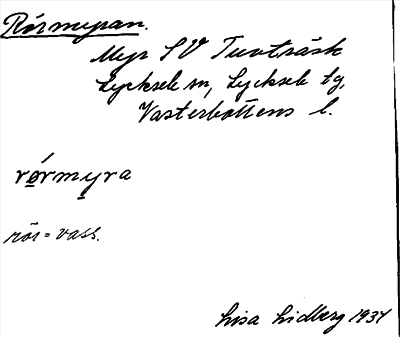 Rörmyran.
Myr SV Tuvträsk
Lycksele sn, Lycksele tg,
Västerbottens l.
rǿrmyra
rör = vass.
Lisa Lidberg 1937